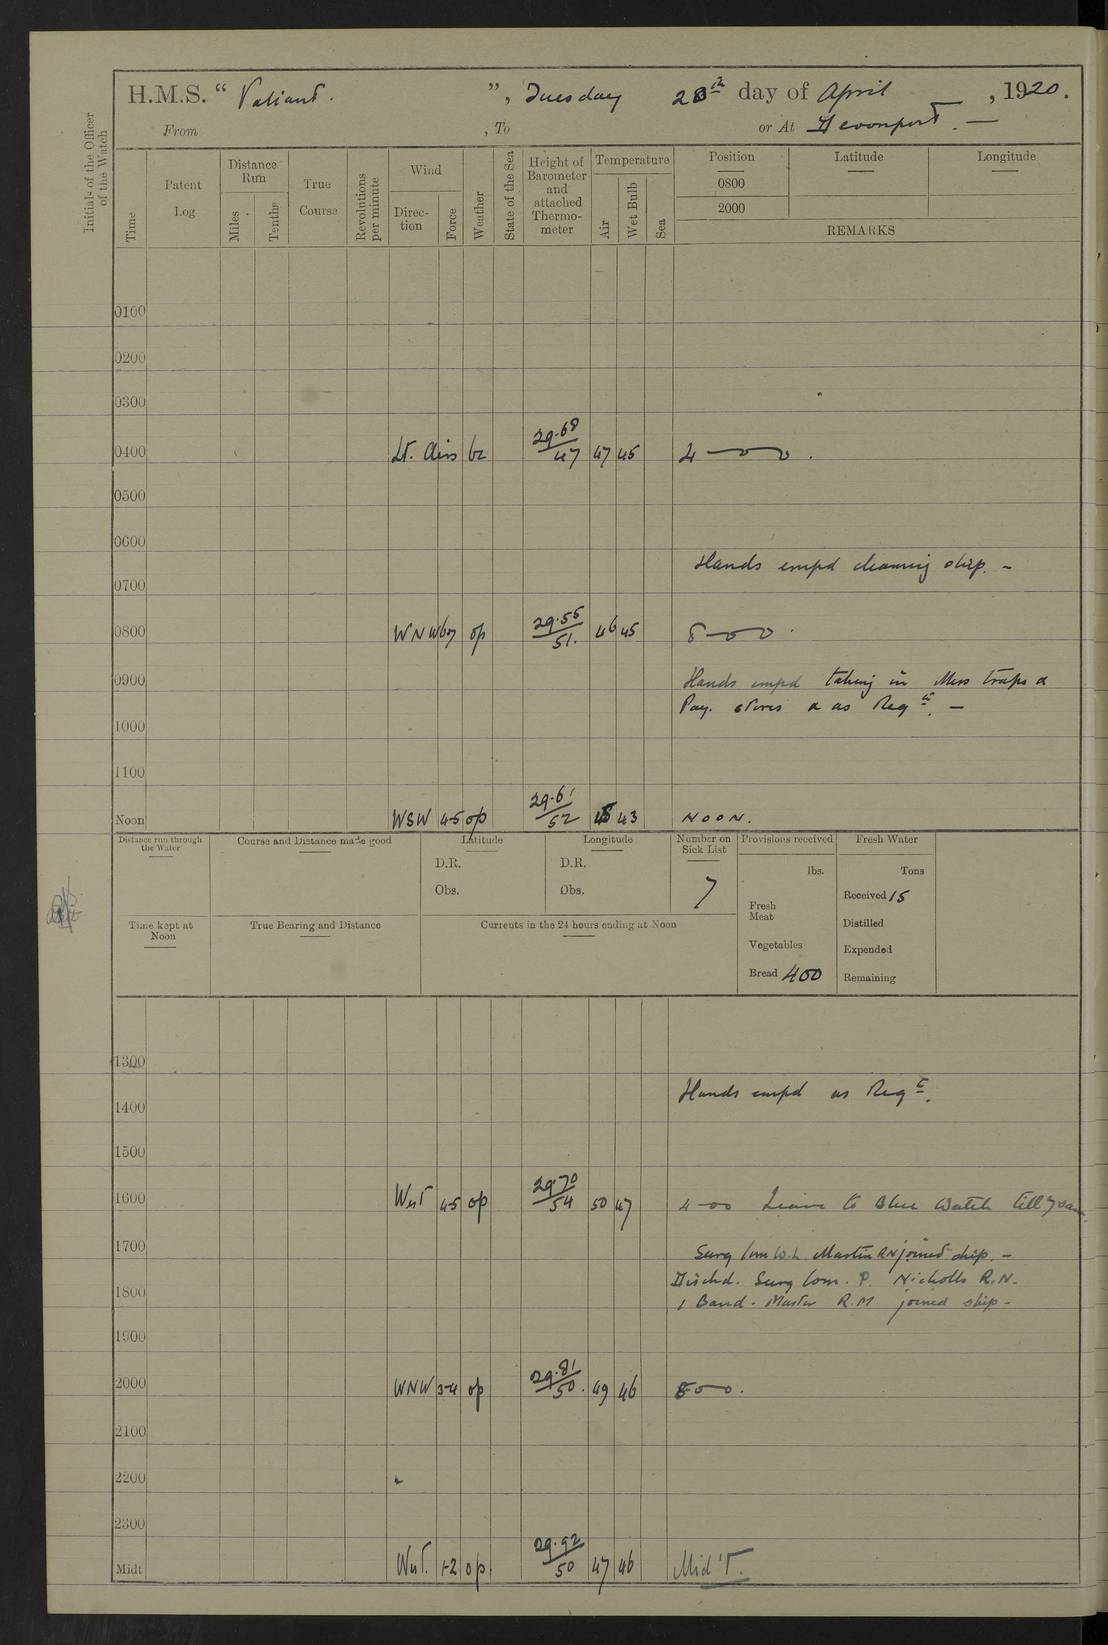 H.M.S. "Valiant.", Tuesday 20th day of April, 1920.
From , To or At Devonport. —
Initials of the Officer of the Watch
Time
Patent Log
Distance Run
Miles
Tenths
True Course
Revolutions per minute
Wind
Direction
Force
Weather
State of the Sea
Height of Barometer and attached Thermometer
Temperature
Air
Wet Bulb
Sea
Position Latitude Longitude
0800
2000
REMARKS
0100
0200
0300
0400 Lt. Airs bc 29.68/47 47 45 4-00.
0500
0600
Hands empd cleaning ship. -
0700
0800 WNW 6-7 op 29.55/51. 46 45 8-00.
0900 Hands empd taking in Mess traps &
Pay. stores & as Reqte. -
1000
1100
Noon WSW 4-5 op 29.61/52 43 NOON.
Distance run through the Water
Course and Distance made good
Latitude
D.R.
Obs.
Longitude
D.R.
Obs.
Number on Sick List
7
Provisions received
lbs.
Fresh Meat
Vegetables
Bread 400
Fresh Water
Tons
Received 15
Distilled
Expended
Remaining
Time kept at Noon
True Bearing and Distance
Currents in the 24 hours ending at Noon
1300
Hands empd as Reqte.
1400
1500
1600 West 4-5 op 29.70/54 50 47 4-00 Leave to Blue Watch till 7 0 am
1700 Surg Com W.L. Martin RN joined ship. -
Dischd. Surg Com. P. Nicholls R.N.
1800 1 Band-Master R.M. joined ship -
1900
2000 WNW 3-4 op 29.81/50. 49 46 8-00.
2100
2200
2300
Midt West. 1-2 op. 29.92/50 47 46 Mid't.